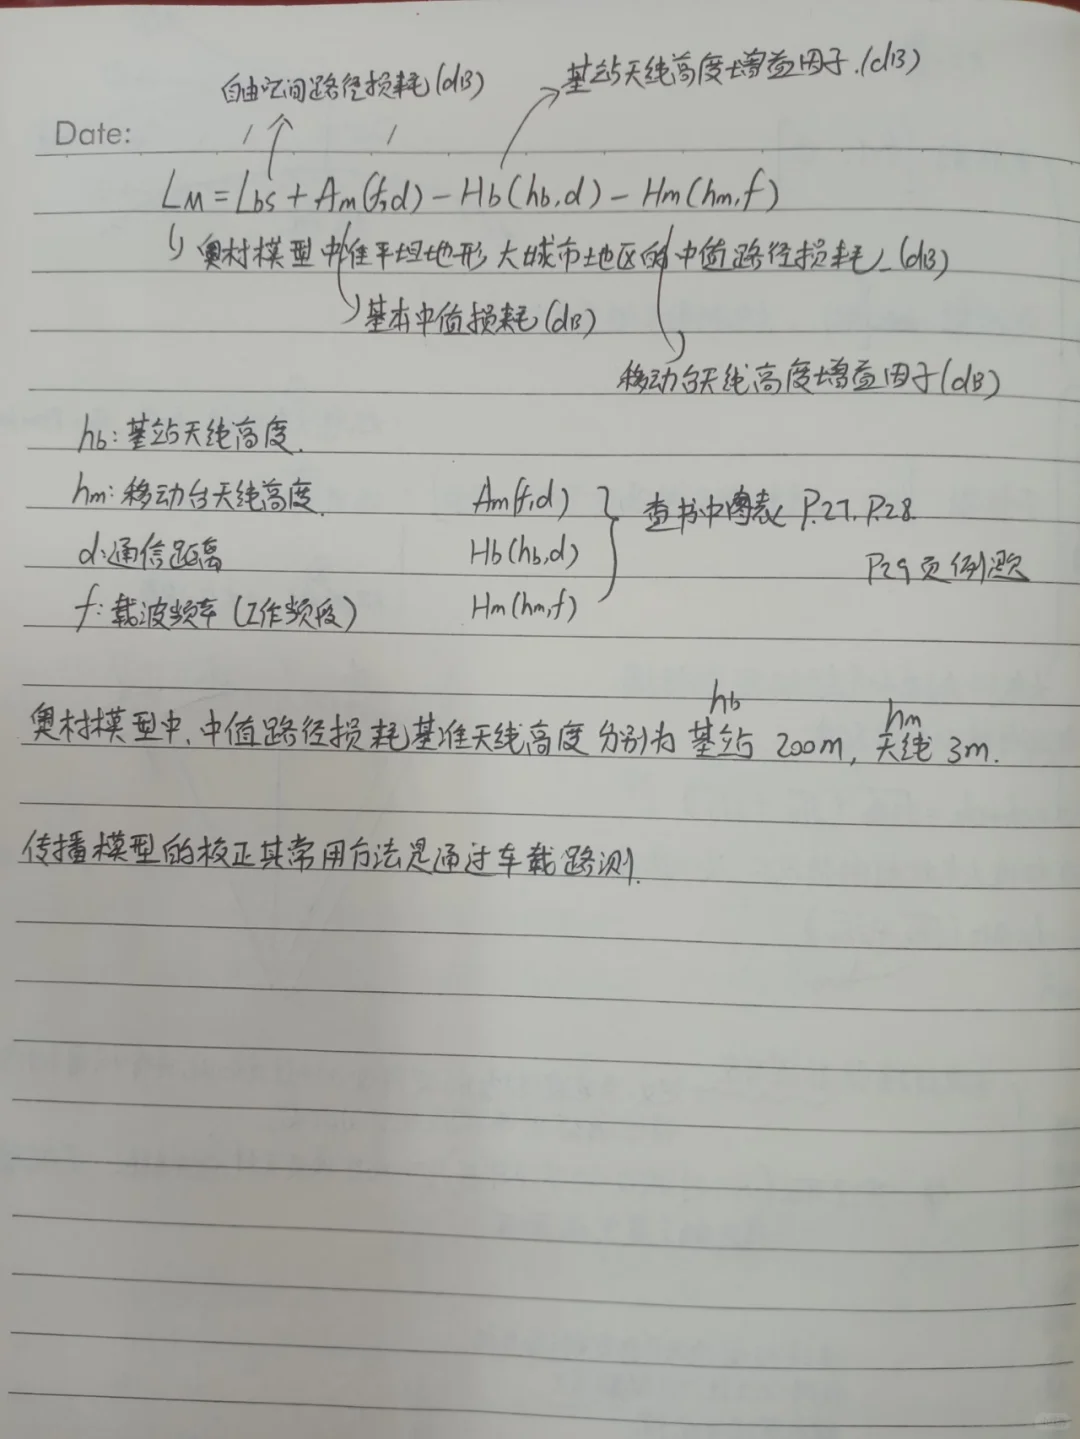 自由空间路径损耗(dB)
基站天线高度增益因子.(dB)
Date: / /
LM = Lbs + Am(f,d) - Hb(hb,d) - Hm(hm,f)
奥村模型中准平坦地形大城市地区的中值路径损耗(dB)
基本中值损耗(dB)
移动台天线高度增益因子(dB)
hb: 基站天线高度.
hm: 移动台天线高度.
d: 通信距离
f: 载波频率(工作频段)
Am(f,d)
Hb(hb,d)
Hm(hm,f)
查书中图表 P.27, P.28.
P29页例题
hb hm
奥村模型中,中值路径损耗基准天线高度分别为基站 200m, 天线 3m.
传播模型的校正其常用方法是通过车载路测.